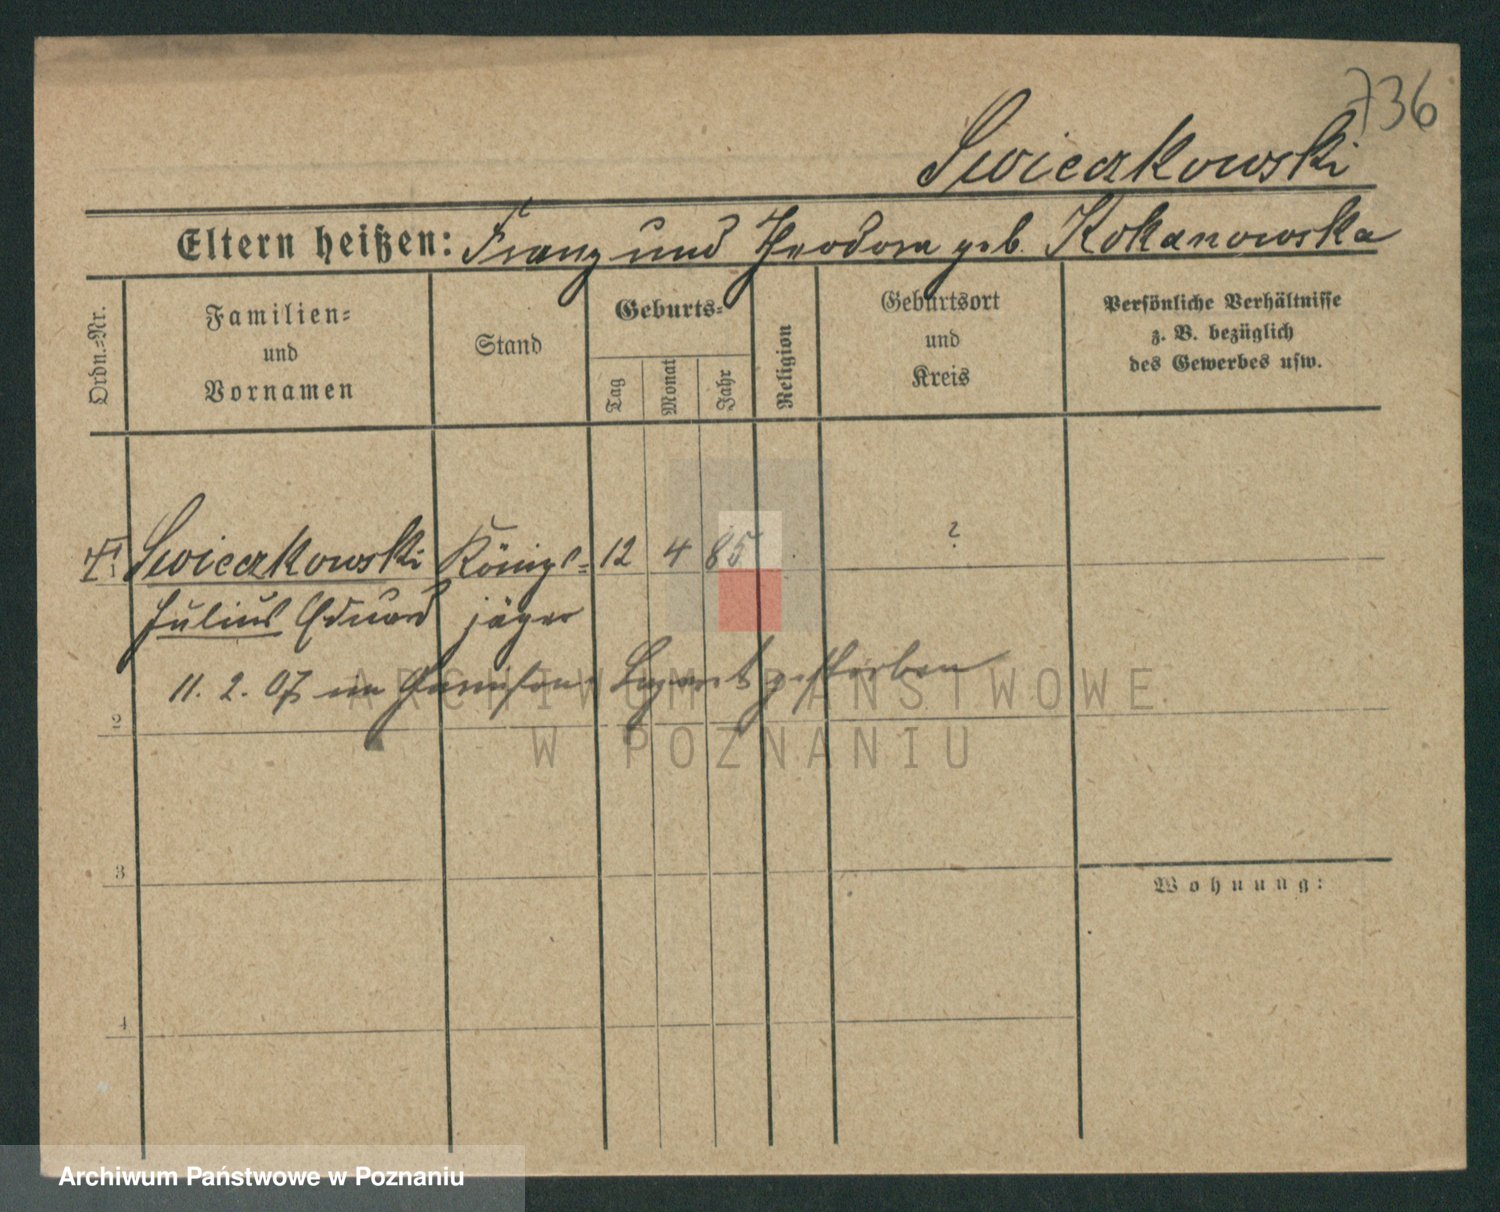 736
Swieczkowski
Eltern heißen: Franz und Theodora geb. Kokanowska
Ordn.-Nr.
Familien-
und
Vornamen
Stand
Geburts-
Tag
Monat
Jahr
Religion
Geburtsort
und
Kreis
Persönliche Verhältnisse
z. B. bezüglich
des Gewerbes usw.
Swieczkowski Königs- 12 4 85 ?
Julius Eduard jäger
11. 2. 07 im Garnison Lazaret gestorben
2
3
4
Wohnung:
ARCHIWUM PAŃSTWOWE
W POZNANIU
Archiwum Państwowe w Poznaniu